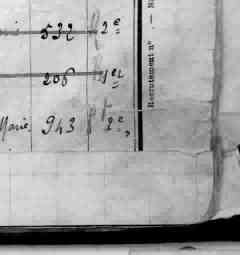 532 2e
208 1er
Marie. 943 2e,
Recrutement n° . — N